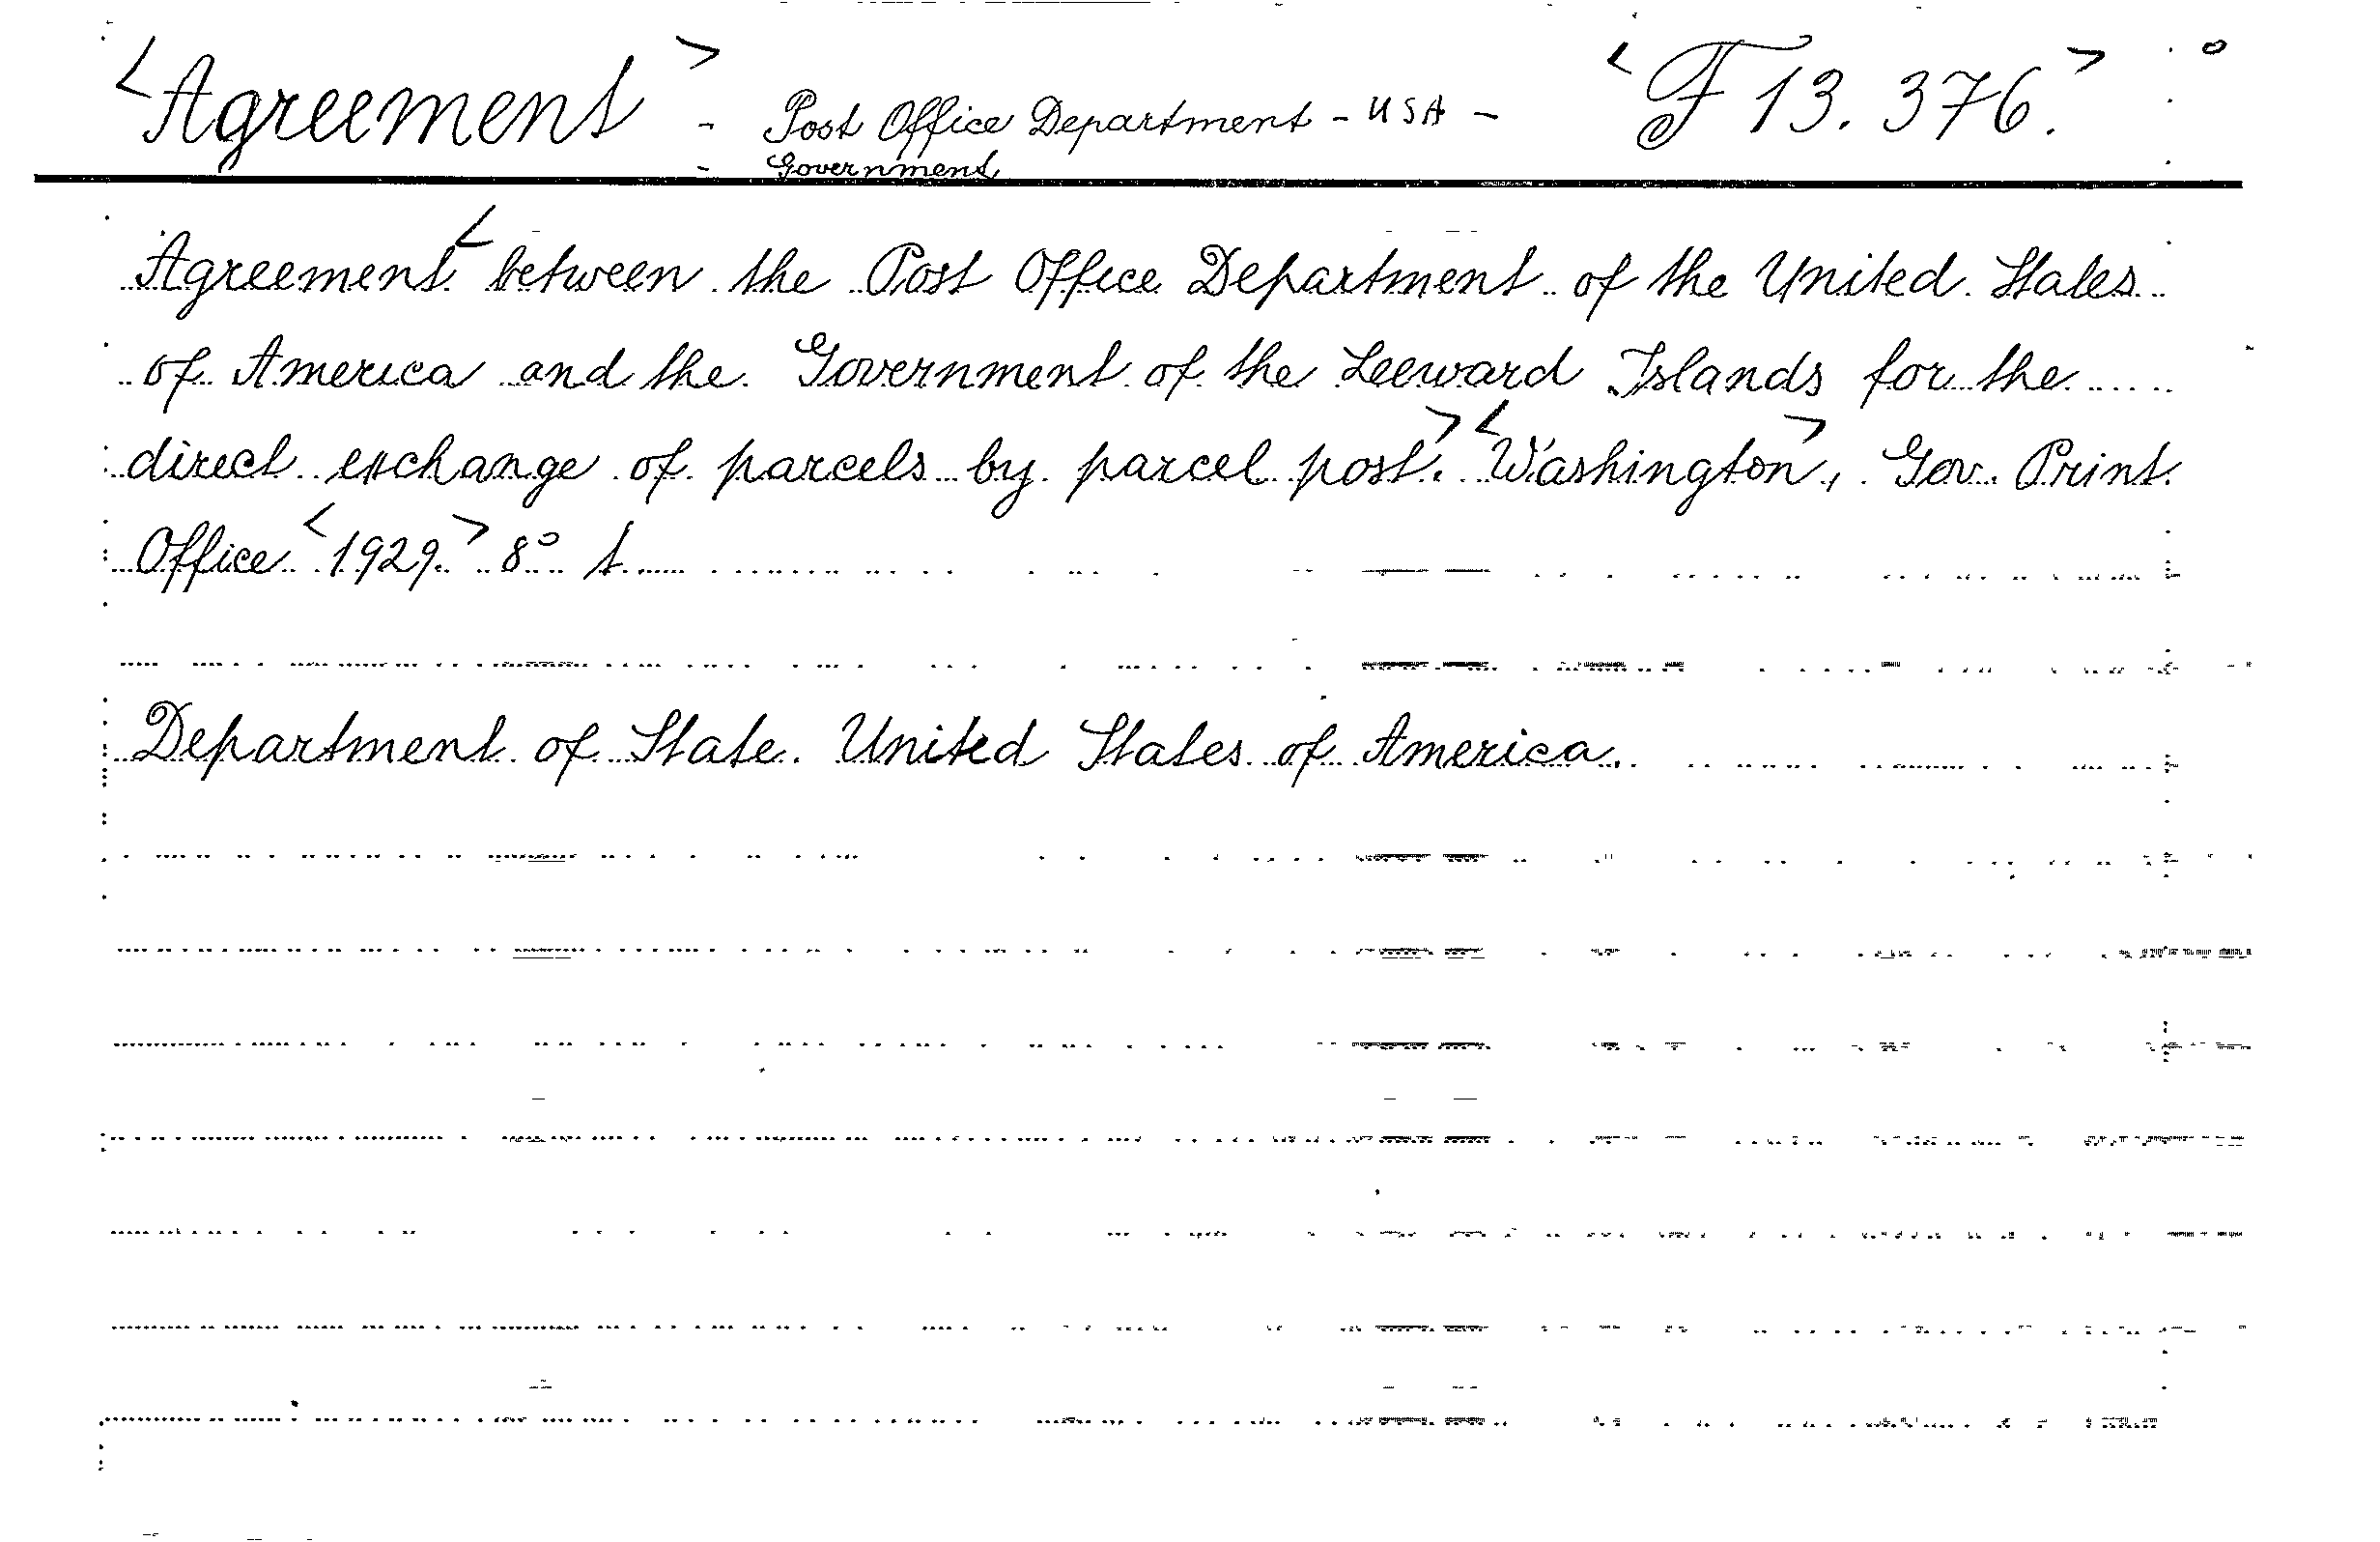 <Agreement> - Post Office Department - USA - <F 13.376.>
- Government
Agreement < between the Post Office Department of the United States
of America and the Government of the Leeward Islands for the
direct exchange of parcels by parcel post.> <Washington>, Gov. Print.
Office <1929> 8°
Department of State. United States of America.